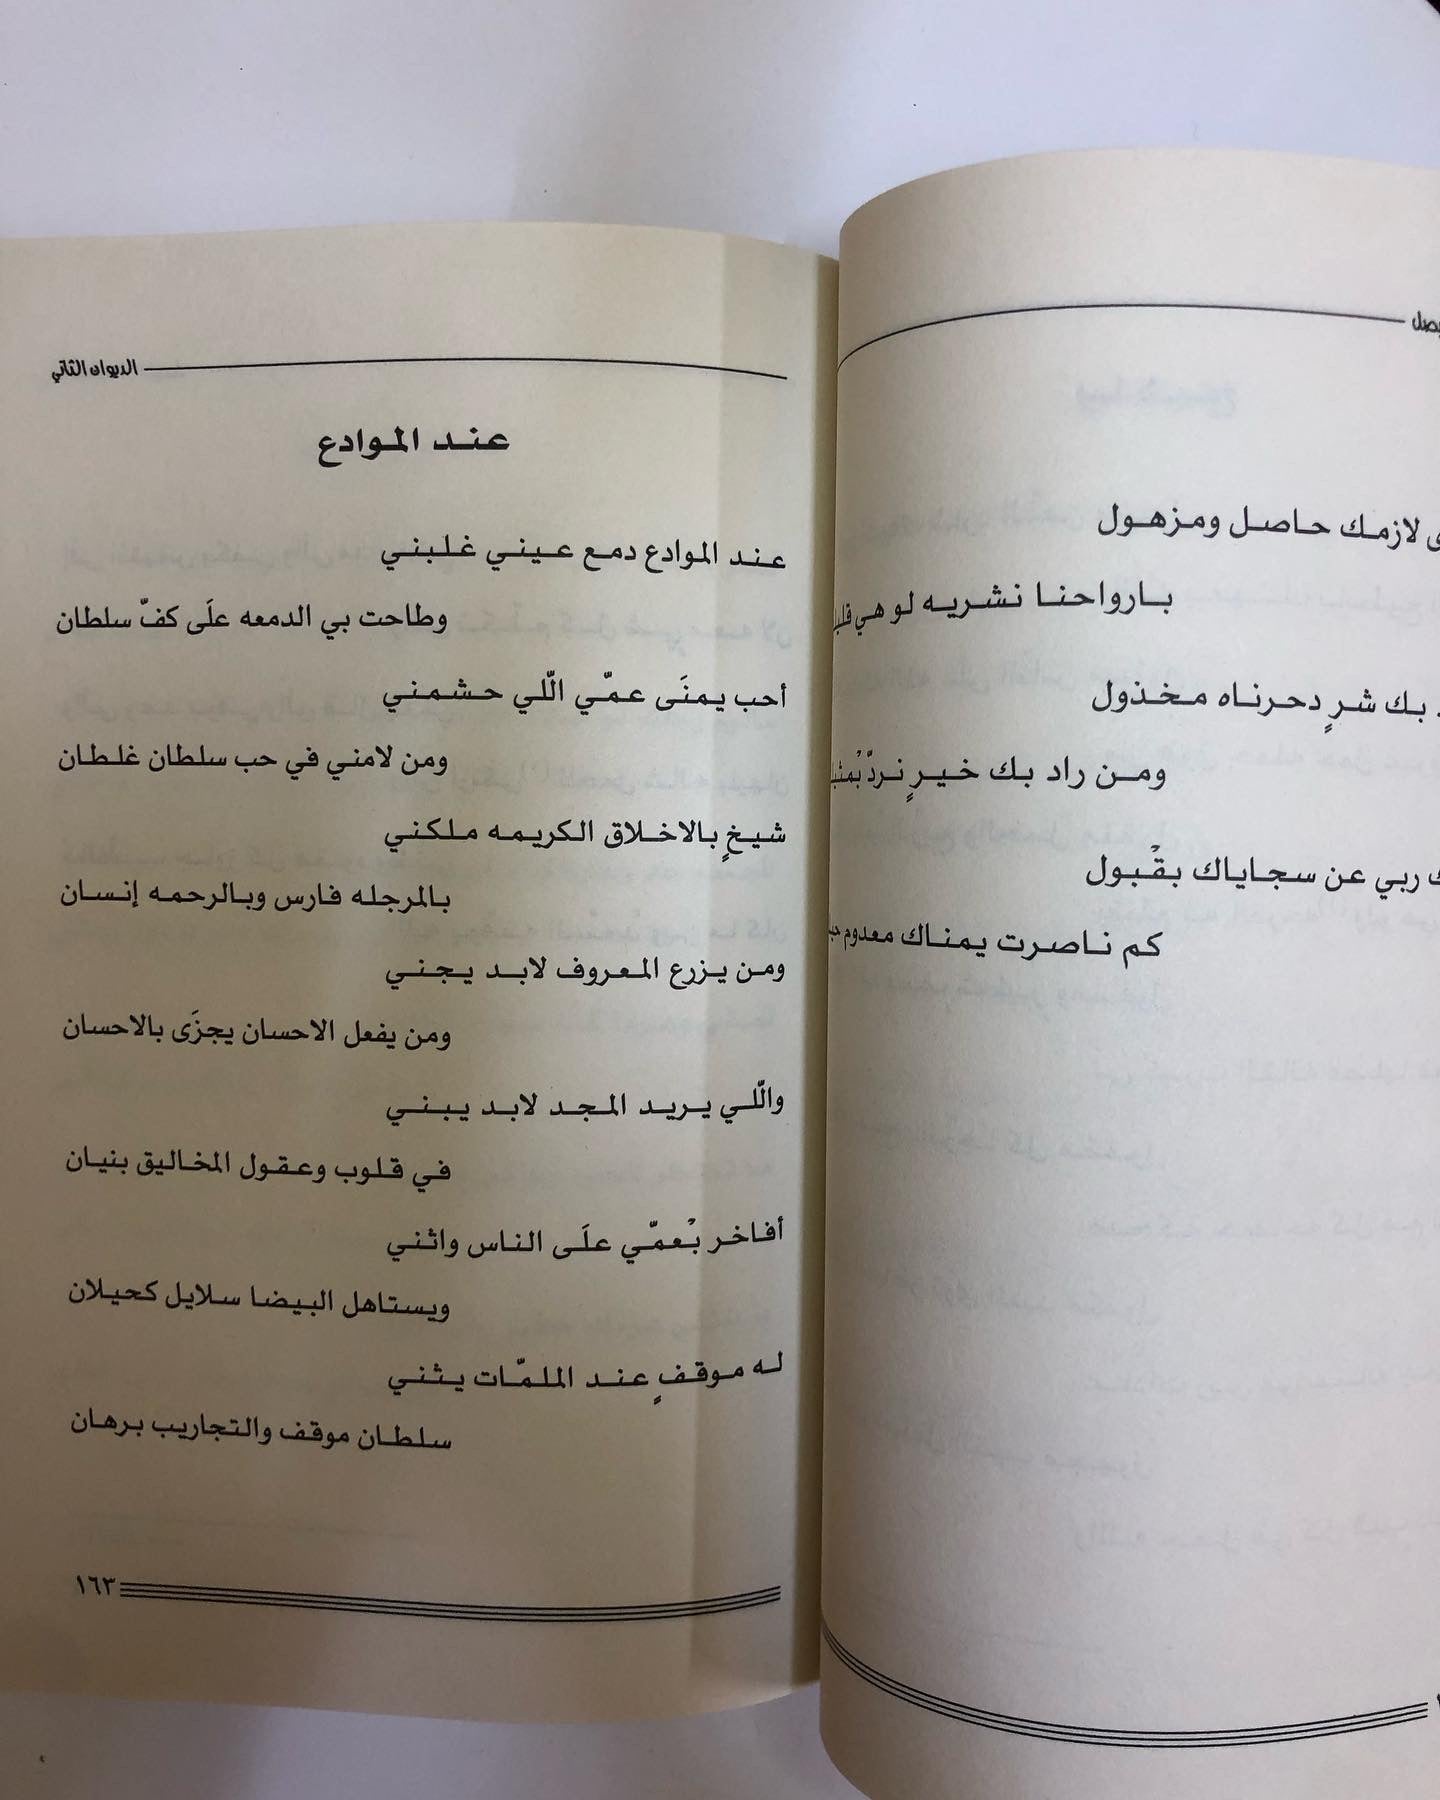 لازمك حاصل ومزهول
بارواحنا نشريه لو هي
بك شرٍ دحرناه مخذول
ومن راد بك خيرٍ نردّ
ربي عن سجاياك بقْبول
كم ناصرت يمناك معدوم
الديوان الثاني
عند الموادع
عند الموادع دمع عيني غلبني
وطاحت بي الدمعه علَى كفّ سلطان
أحب يمنَى عمّي الّلي حشمني
ومن لامني في حب سلطان غلطان
شيخٍ بالاخلاق الكريمه ملكني
بالمرجله فارس وبالرحمه إنسان
ومن يزرع المعروف لابد يجني
ومن يفعل الاحسان يجزَى بالاحسان
والّلي يريد المجد لابد يبني
في قلوب وعقول المخاليق بنيان
أفاخر بْعمّي علَى الناس واثني
ويستاهل البيضا سلايل كحيلان
له موقفٍ عند الملمّات يثني
سلطان موقف والتجاريب برهان
١٦٣